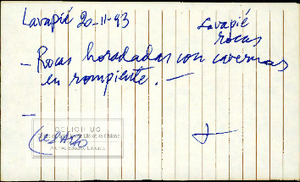 Lavapié 20-11-93
Lavapié
rocas
- Rocas horadadas con cavernas
en rompiente. —
-